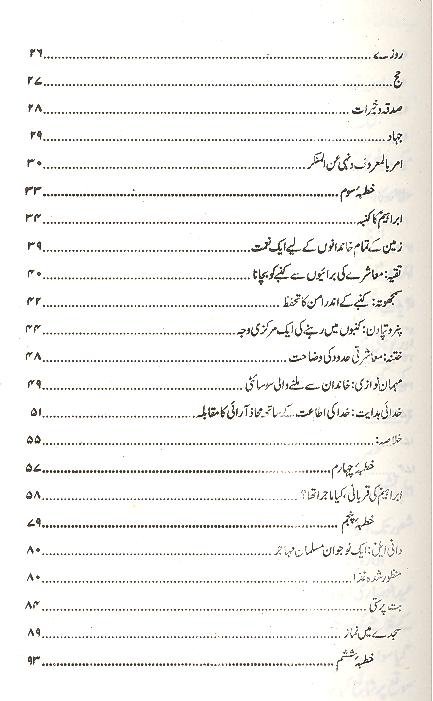 روزے ........ ۲۶
حج ........ ۲۷
صدقہ و خیرات ........ ۲۸
جہاد ........ ۲۹
امر بالمعروف و نہی عن المنکر ........ ۳۰
خطبۂ سوم ........ ۳۳
ابراہیمؑ کا کنبہ ........ ۳۴
زمین کے تمام خاندانوں کے لیے ایک نعمت ........ ۳۹
تقیہ: معاشرے کی برائیوں سے کنبے کو بچانا ........ ۴۰
سمجھوتہ: کنبے کے اندر امن کا تحفظ ........ ۴۲
پنر و تپادن: کنبوں میں رہنے کی ایک مرکزی وجہ ........ ۴۴
ختنہ: معاشرتی حدود کی وضاحت ........ ۴۸
مہمان نوازی: خاندان سے ملنے والی سوسائٹی ........ ۴۹
خدائی ہدایت: خدا کی اطاعت کے ساتھ محاذ آرائی کا مقابلہ ........ ۵۱
خلاصہ: ........ ۵۵
خطبۂ چہارم ........ ۵۷
ابراہیمؑ کی قربانی، کیا ماجرا تھا؟ ........ ۵۸
خطبۂ پنجم ........ ۷۹
دانی ایل: ایک نوجوان مسلمان مہاجر ........ ۸۰
منظور شدہ غذا ........ ۸۰
بت پرستی ........ ۸۴
سجدے میں نماز ........ ۸۹
خطبۂ ششم ........ ۹۳